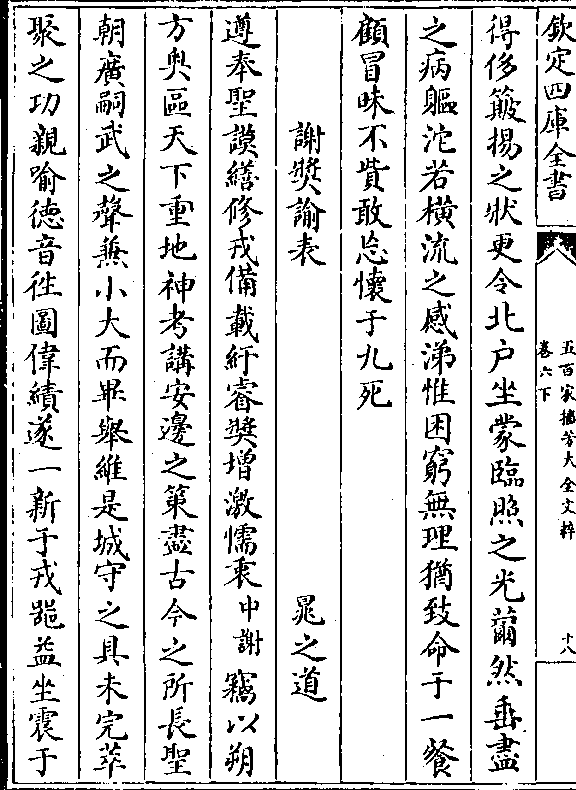 欽定四庫全書
五百家播芳大全文粹
卷六下
十八
得侈簸揚之狀更令北户坐蒙臨照之光薾然垂盡
之病軀沱若橫流之感涕惟困窮無理猶致命于一餐
顧冒昧不貲敢忘懷于九死
謝奬諭表 晁之道
遵奉聖謨繕修戎備載紆睿奬增激懦衷中謝竊以朔
方奥區天下重地神考講安邊之策盡古今之所長聖
朝廣嗣武之聲無小大而畢舉維是城守之具未完萃
聚之功親喻德音徃圖偉績遂一新于戎器益坐震于